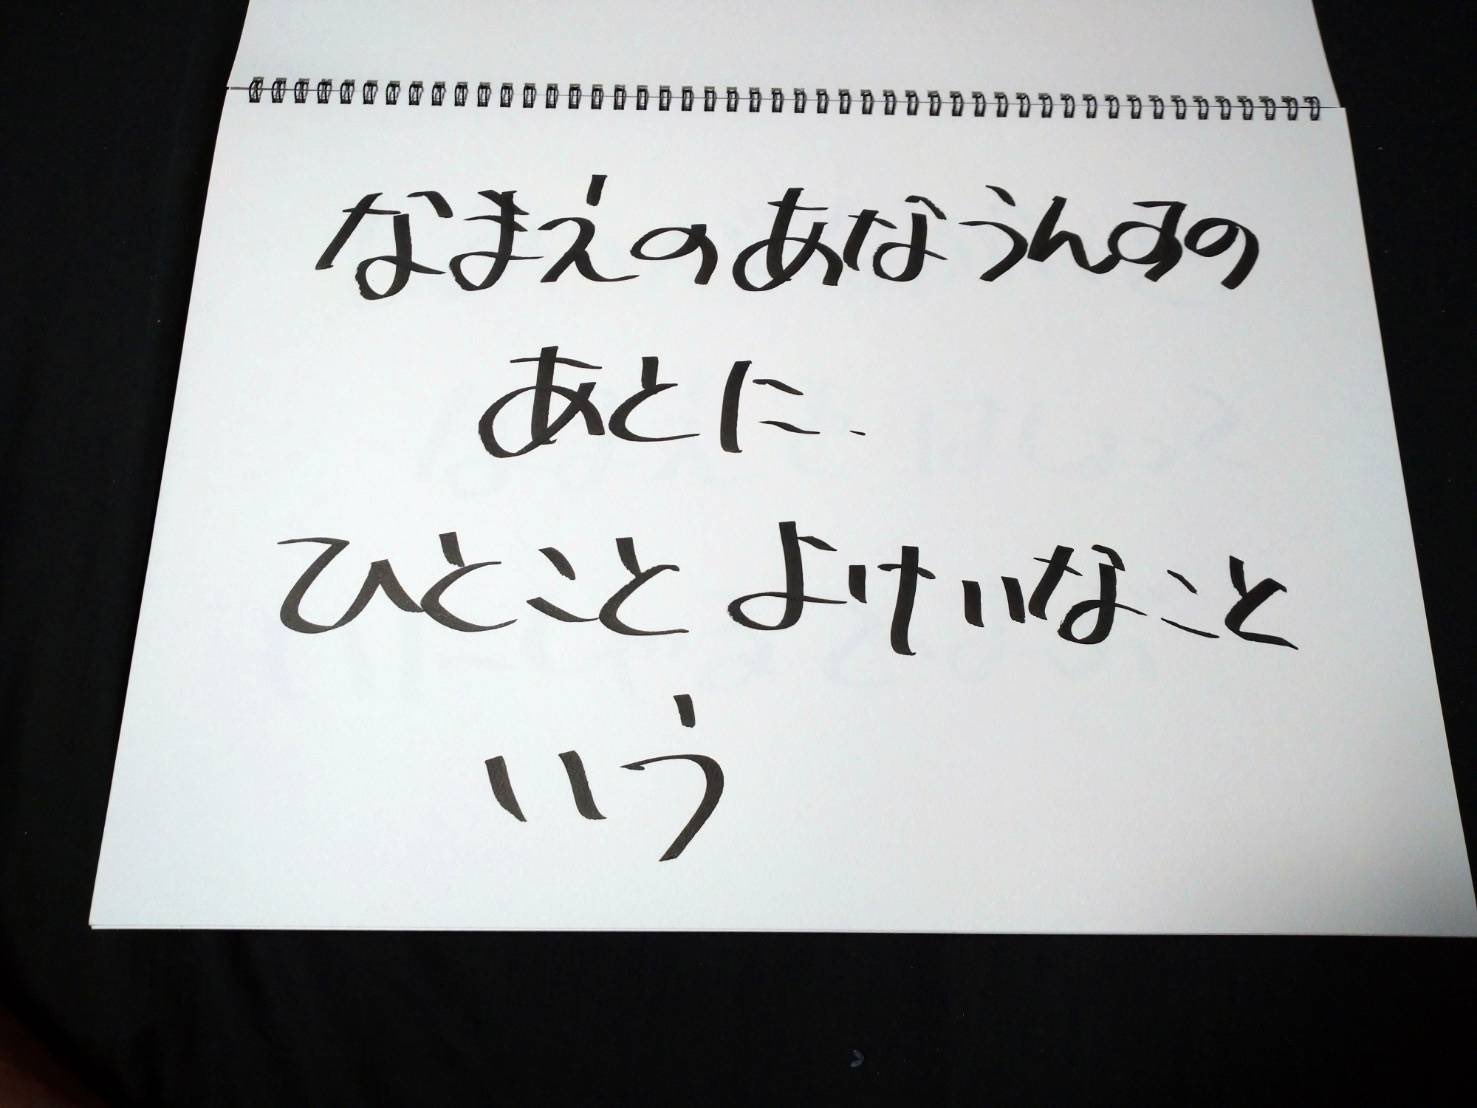 なまえのあなうんすの
あとに、
ひとこと よけいなこと
いう